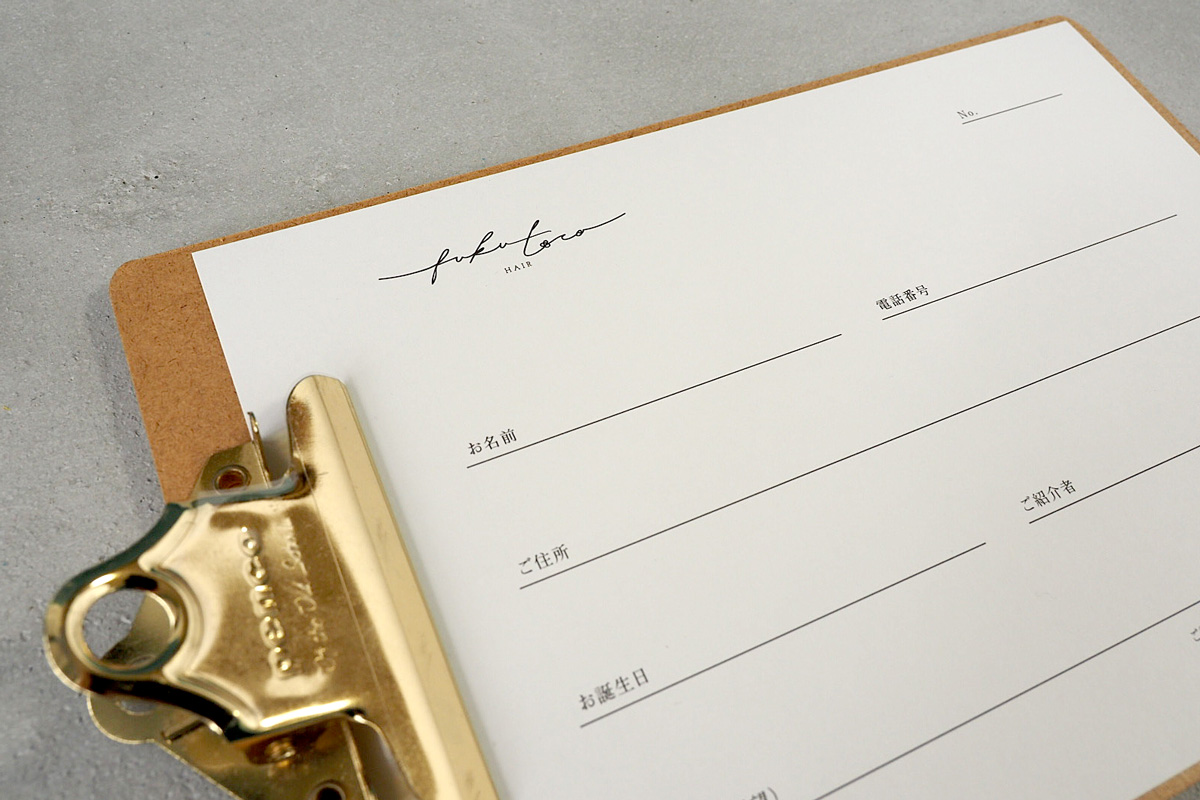 No.
fukutoco
HAIR
お名前
電話番号
ご住所
お誕生日
ご紹介者
penco